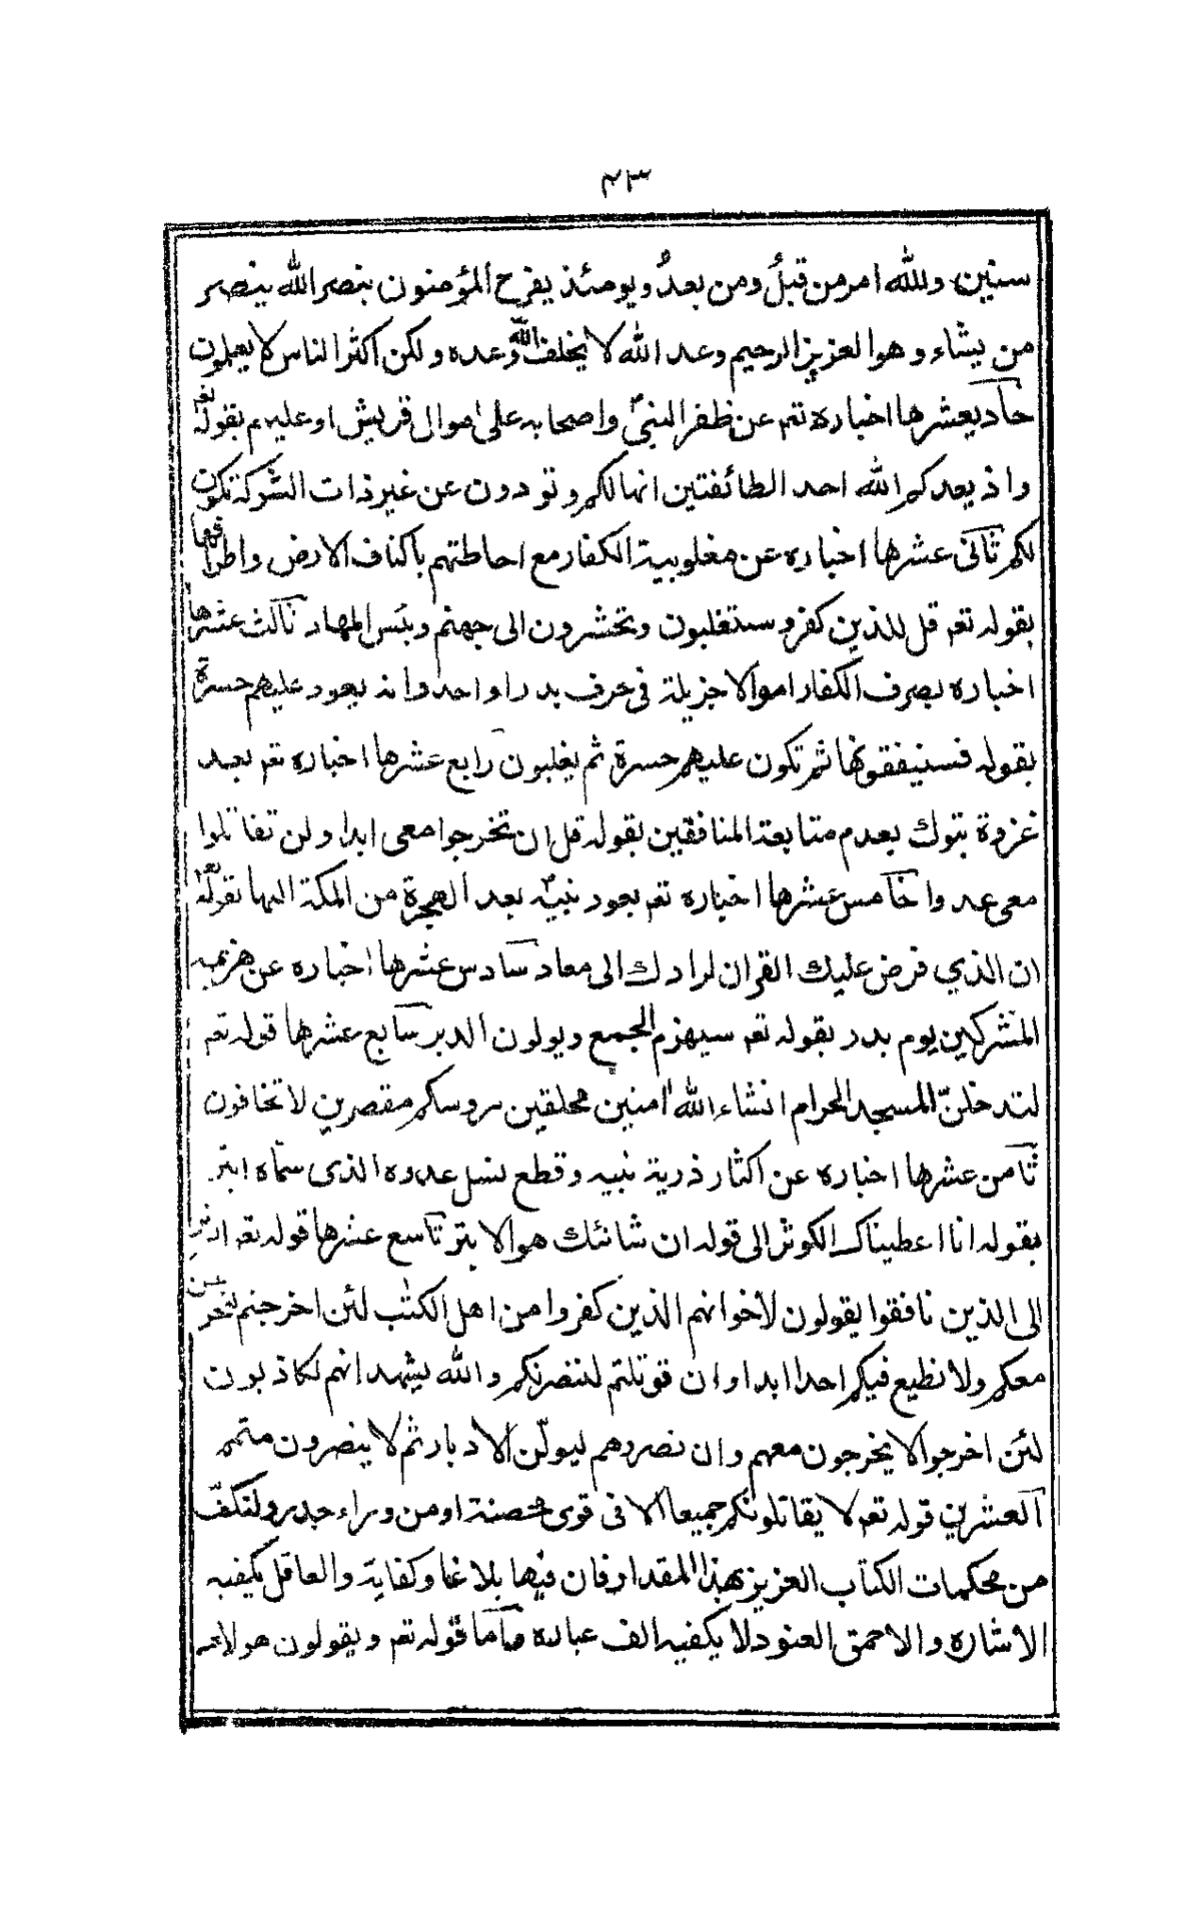 ٢٣
سنين. ولله امر من قبلُ ومن بعدُ ويومئذ يفرح المؤمنون بنصر الله ينصر
من يشاء وهو العزيز الرحيم وعد الله لا يخلف الله وعده ولكن اكثر الناس لا يعلمون
حاديعشرها اخباره تعم عن ظفر النبي واصحابه على اموال قريش او عليهم بقوله تعم
واذ يعدكم الله احد الطائفتين انها لكم وتودون عن غير ذات الشوكة تكون
لكم ثانى عشرها اخباره عن مغلوبية الكفار مع احاطتهم باكناف الارض واطرافها
بقوله تعم قل للذين كفرو ستغلبون وتحشرون الى جهنم وبئس المهاد ثالث عشرها
اخباره بصرف الكفار اموالا جزيلة فى حرف بدر او احد وانه يعود عليهم حسرة
بقوله فسينفقونها ثم تكون عليهم حسرة ثم يغلبون رابع عشرها اخباره تعم بعد
غزوة بتوك بعدم متابعة المنافقين بقوله قل ان تخرجوا معى ابدا ولن تفاتلوا
معى عدوا خامس عشرها اخباره تعم بعود نبيه بعد الهجرة من المكة اليها بقوله تعم
ان الذي فرض عليك القران لرادك الى معاد سادس عشرها اخباره عن هزيمه
المشركين يوم بدر بقوله تعم سيهزم الجمع ويولون الدبر سابع عشرها قوله تعم
لتدخلنّ المسجد الحرام انشاء الله امنين محلقين روسكم مقصرين لا تخافون
ثامن عشرها اخباره عن اكثار ذرية نبيه وقطع نسل عدوه الذى سماه ابتر
بقوله انا اعطيناك الكوثر الى قوله ان شانئك هو الابتر تاسع عشرها قوله تعم
الى الذين نافقوا يقولون لاخوانهم الذين كفروا من اهل الكتب لئن اخرجتم لنخرجن
معكم ولا نطيع فيكم احدا ابدا وان قوتلتم لننصرنكم والله يشهد انهم لكاذبون
لئن اخرجوا لا يخرجون معهم وان نصروهم ليولّن الادبار ثم لا ينصرون متمم
العشرين قوله تعم لا يقاتلونكم جميعا الا فى قوى محصنة او من وراء جدر ولنكفّ
من محكمات الكتاب العزيز بهذا المقدار فان فيها بلاغا وكفاية والعاقل يكفيه
الاشاره والاحمق العنود لا يكفيه الف عباره واما قوله تعم ويقولون هولاء